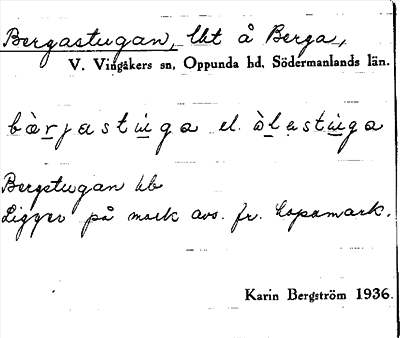 Bergastugan, lht å Berga,
V. Vingåkers sn, Oppunda hd, Södermanlands län.
bàrjastu̲ga el. àlastu̲ga
Bergstugan hb
Ligger på mark avs. fr.
Karin Bergström 1936.